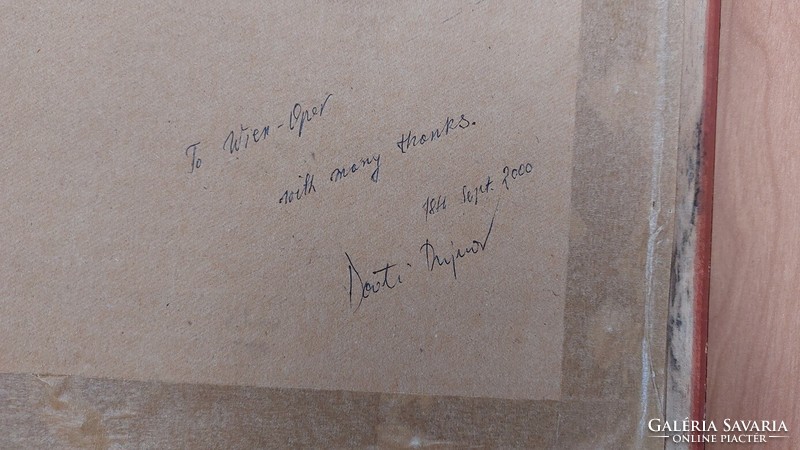 To Wien-Oper
with many thanks.
18th Sept. 2000
GALÉRIA SAVARIA
ONLINE PIACTÉR